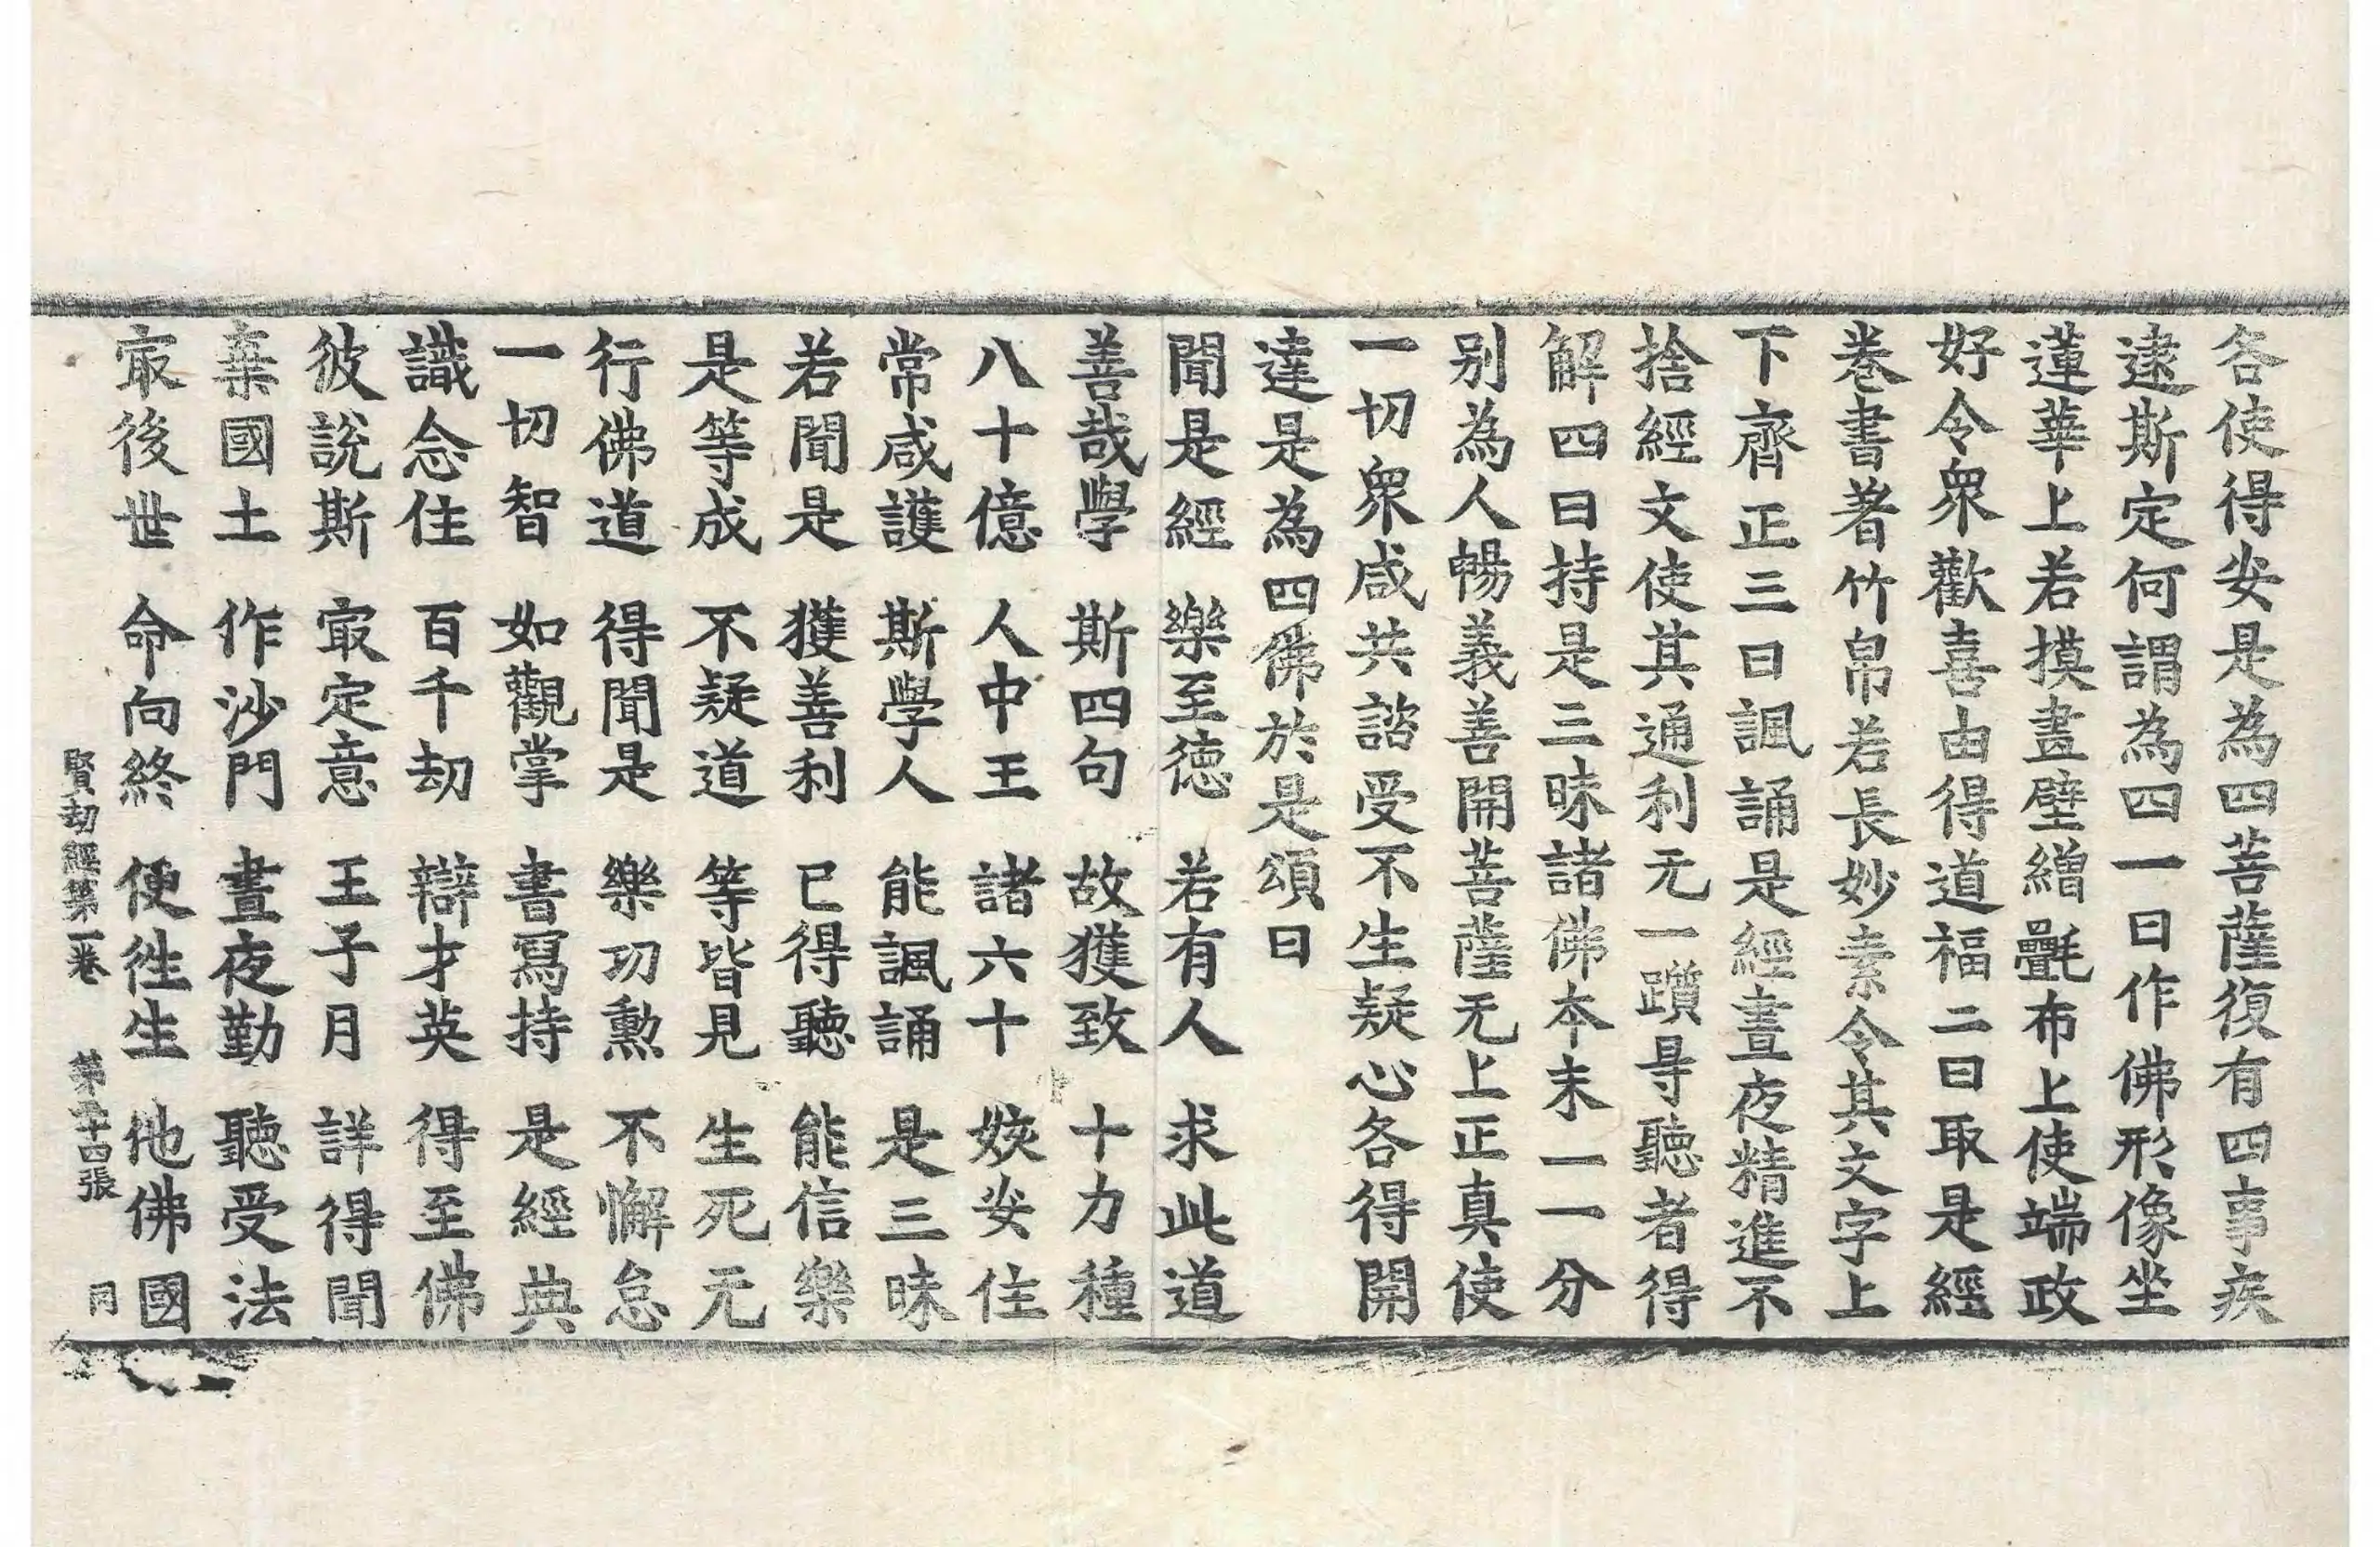 各使得安是為四菩薩復有四事疾
逮斯定何謂為四一曰作佛形像坐
蓮華上若摸畫壁繒㲲布上使端政
好令衆歡喜由得道福二曰取是經
卷書著竹帛若長妙素令其文字上
下齊正三曰諷誦是經晝夜精進不
捨經文使其通利无一躓㝵聽者得
解四曰持是三昧諸佛本末一一分
別為人暢義善開菩薩无上正真使
一切衆咸共諮受不生疑心各得開
達是為四佛於是頌曰
聞是經　樂至德　若有人　求此道
善哉學　斯四句　故獲致　十力種
八十億　人中王　諸六十　姟安住
常咸護　斯學人　能諷誦　是三昧
若聞是　獲善利　已得聽　能信樂
是等成　不疑道　等皆見　生死无
行佛道　得聞是　樂功勳　不懈怠
一切智　如觀掌　書寫持　是經典
識念住　百千劫　辯才英　得至佛
彼說斯　㝡定意　王子月　詳得聞
棄國土　作沙門　晝夜勤　聽受法
㝡後世　命向終　便徃生　他佛國
賢劫經第一卷　第二十四張　同